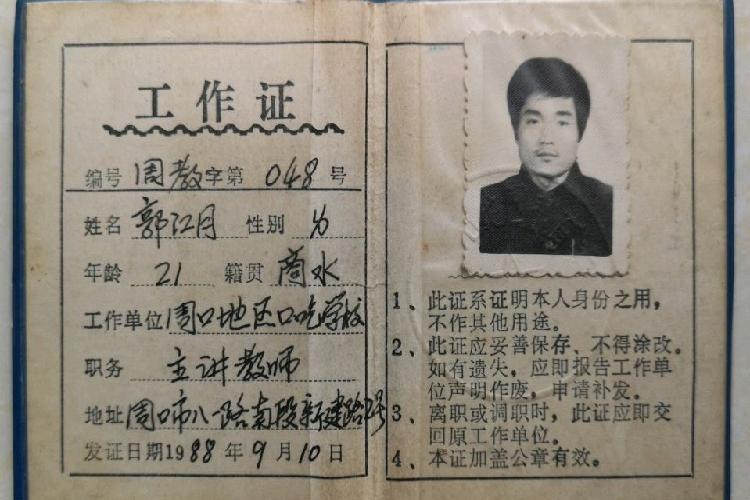 工作证
编号 周教字第 048 号
姓名 郭江月 性别 男
年龄 21 籍贯 商水
工作单位 周口地区口吃学校
职务 主讲教师
地址 周口市八一路南段新建路2号
发证日期1988年9月10日
1、此证系证明本人身份之用，
不作其他用途。
2、此证应妥善保存、不得涂改。
如有遗失，应即报告工作单
位声明作废，申请补发。
3、离职或调职时，此证应即交
回原工作单位。
4、本证加盖公章有效。